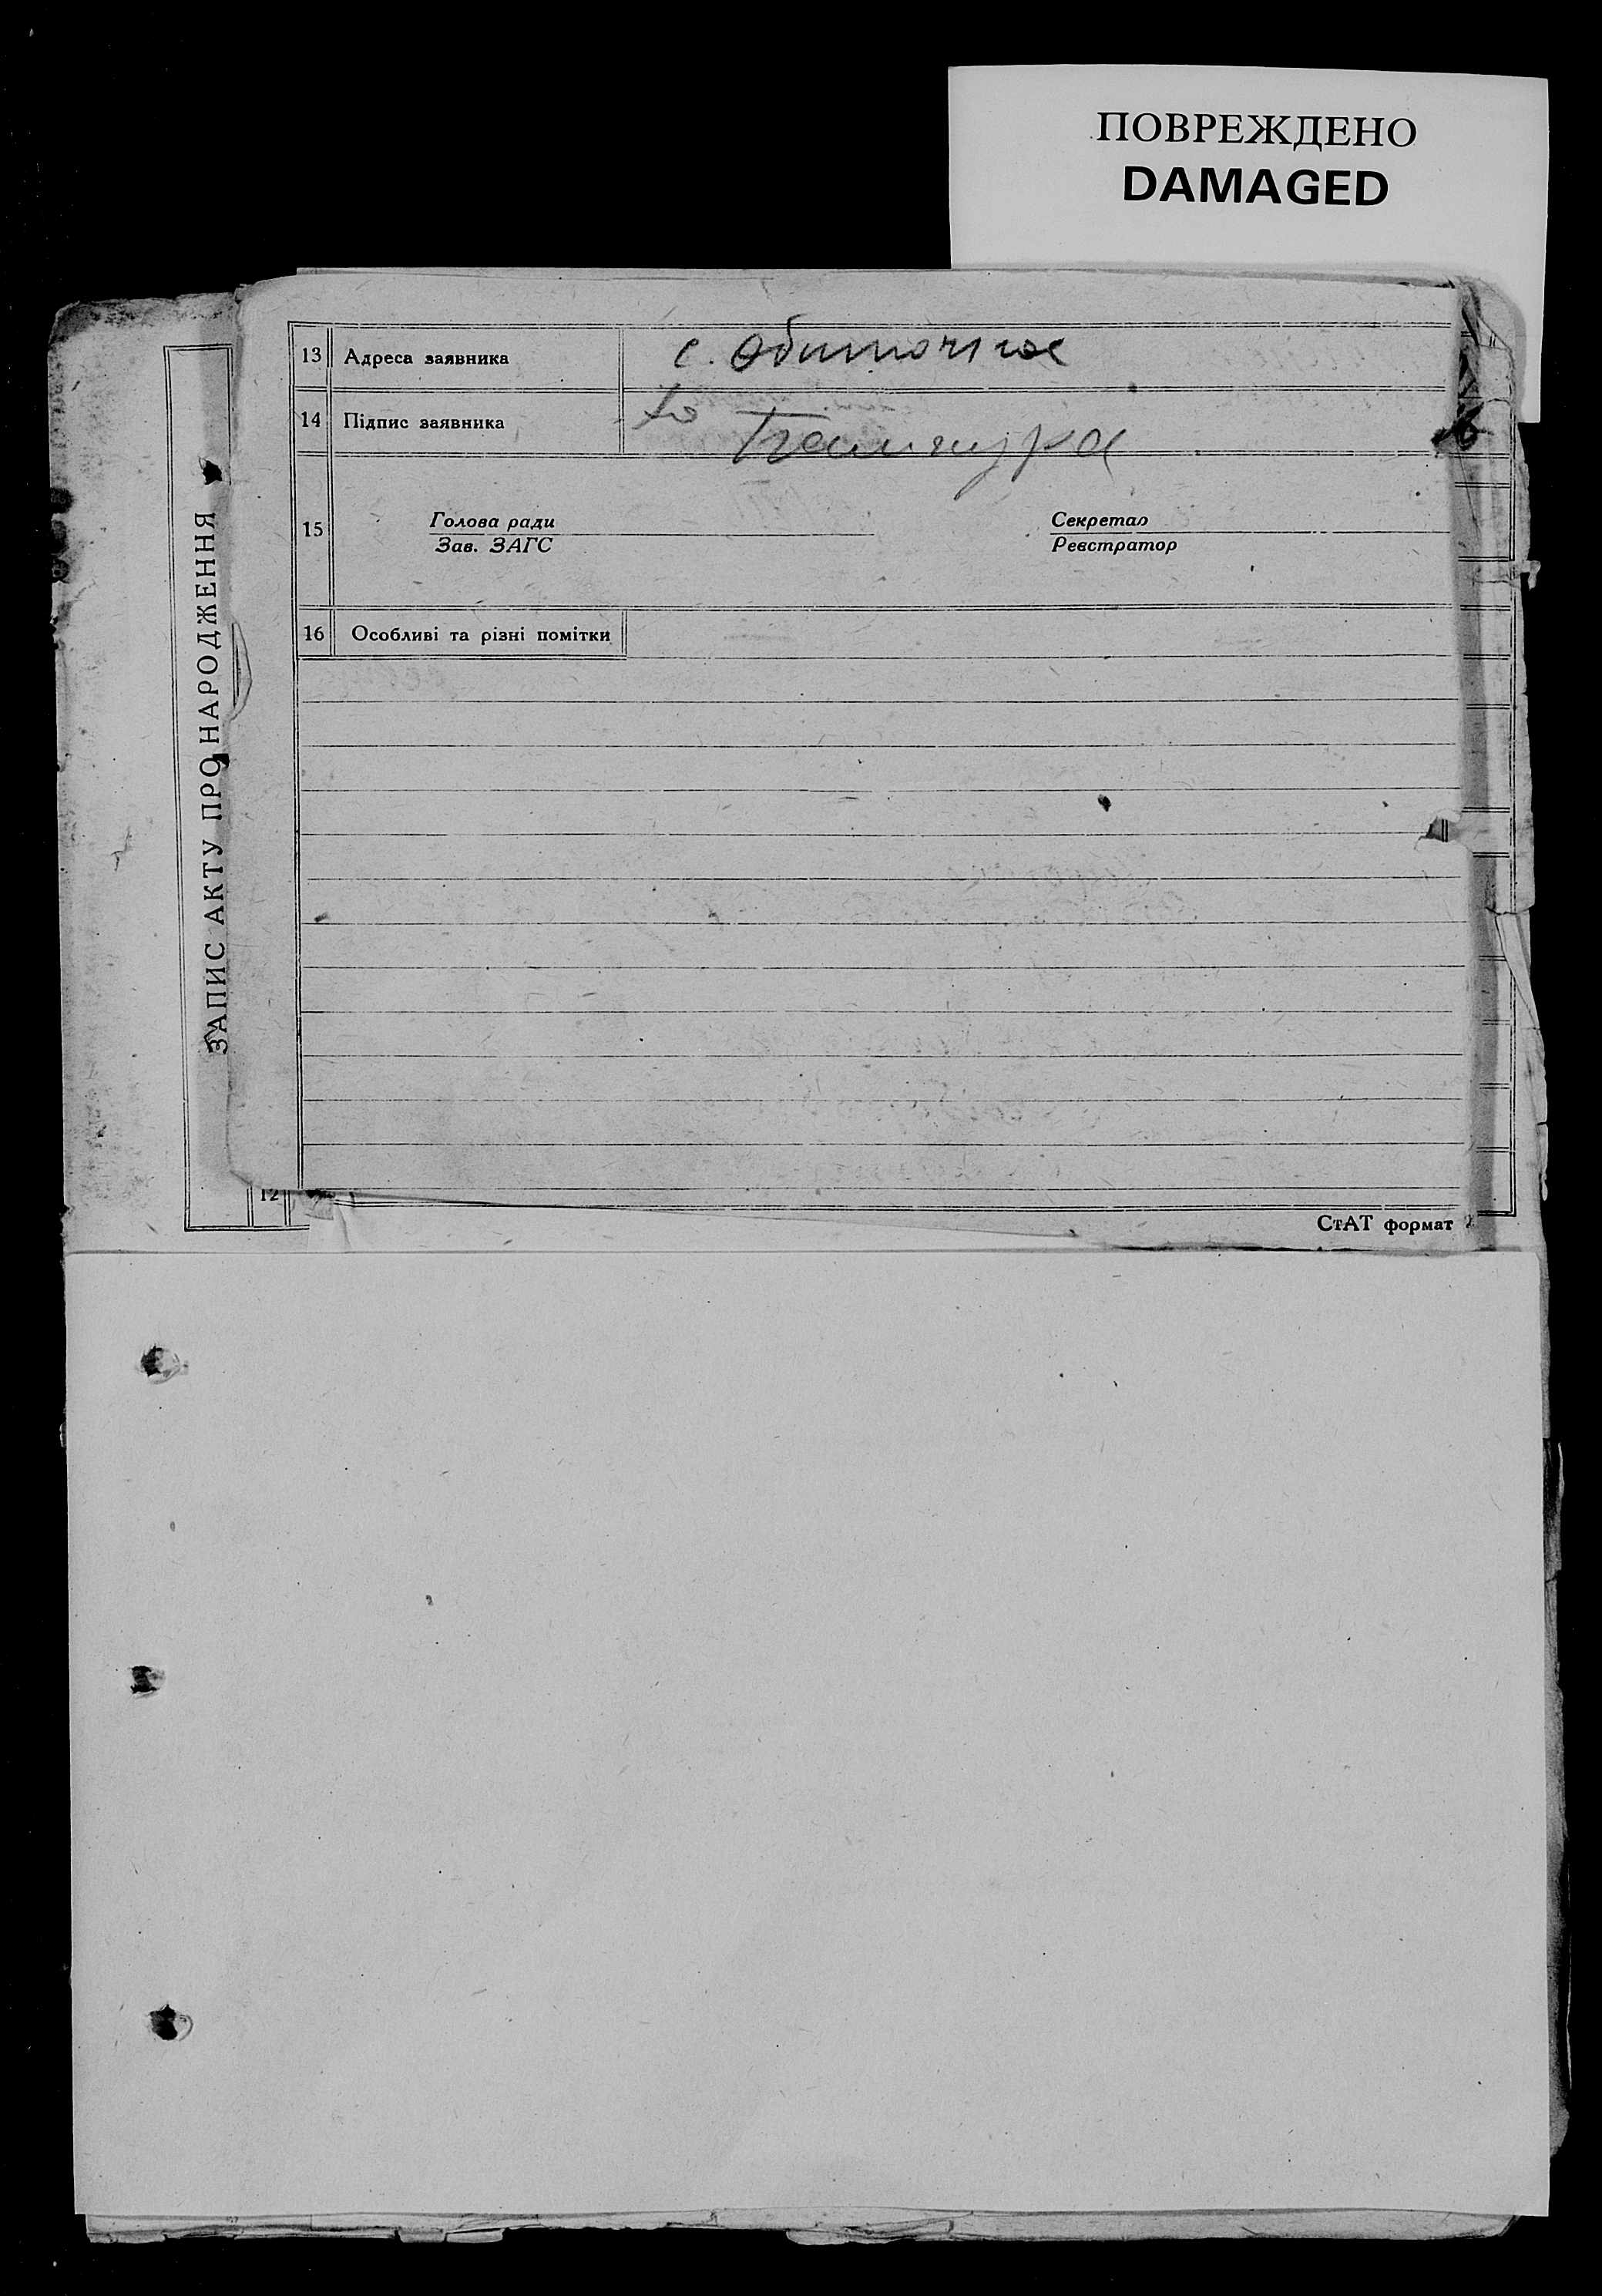 ПОВРЕЖДЕНО
DAMAGED
13 Адреса заявника с. Обиточное
14 Підпис заявника
15 Голова ради
Зав. ЗАГС
Секретар
Реєстратор
16 Особливі та різні помітки
ЗАПИС АКТУ ПРО НАРОДЖЕННЯ
12
СтАТ формат